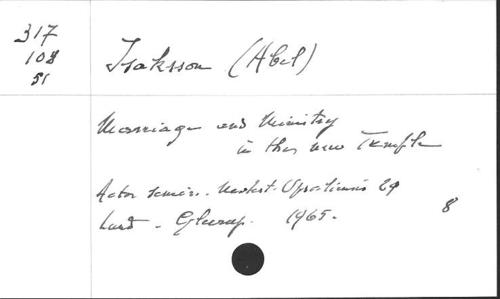 317
108
51
Isaksson (Abel)
Marriage and Ministry
in the new Temple
Acta semin. neotest. Upsaliensis 24
Lund - Gleerup. 1965.
8